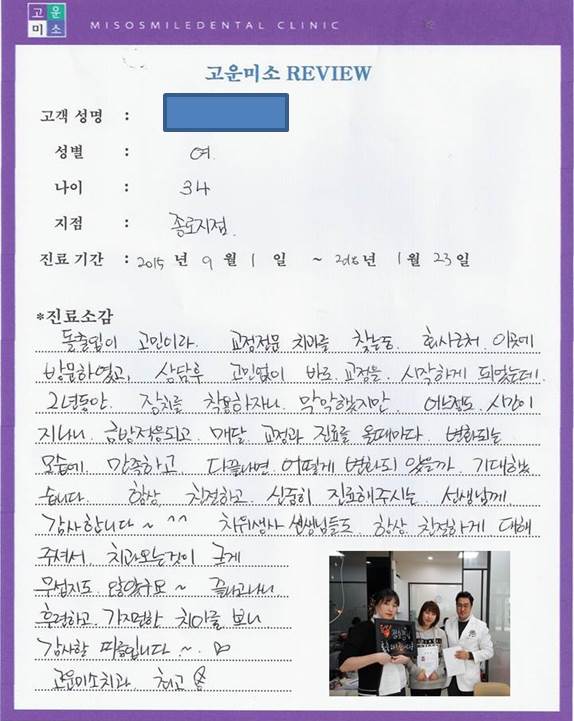 고운
미소
MISOSMILEDENTAL CLINIC
고운미소 REVIEW
고객 성명 :
성별 : 여
나이 : 34
지점 : 종로지점.
진료 기간 : 2015 년 9 월 1 일 ~ 2018 년 1 월 23 일
*진료소감
돌출입이 고민이라. 교정전문 치과를 찾는중. 회사근처 이곳에
방문하였고, 상담후 고민없이 바로 교정을 시작하게 되었는데.
2년동안. 장치를 착용하자니. 막막했지만. 어느정도. 시간이
지나니. 금방적응되고. 매달. 교정과 진료를 올때마다. 변화되는
모습에. 만족하고 다끝나면. 어떻게 변화되 있을까 기대했
습니다. 항상 친절하고. 신중히 진료해주시는 선생님께
감사합니다~ ^^ 치위생사 선생님들도. 항상 친절하게 대해
주셔서, 치과오는것이 크게
무섭지도 않았구요~ 끝나고나니
후련하고. 가지런한 치아를 보니
감사할 따름입니다~.
고운미소치과. 최고